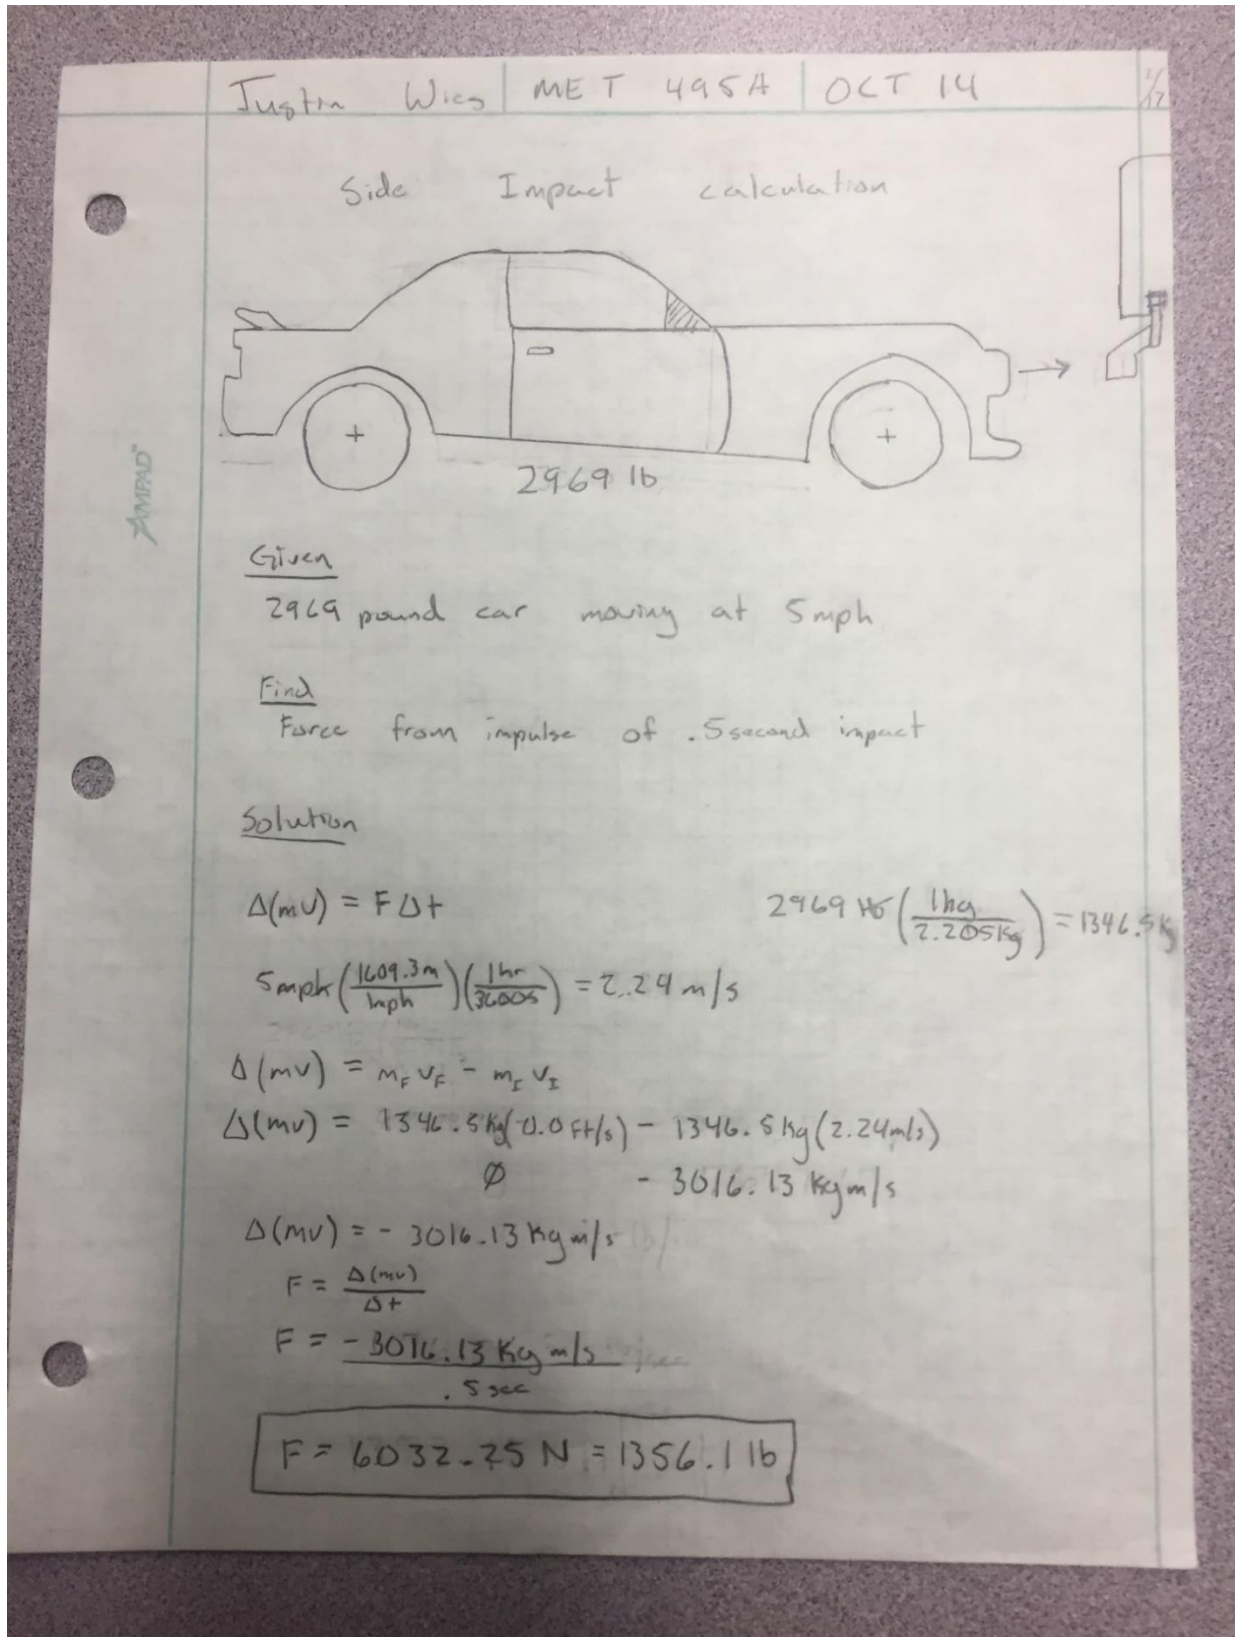 Justin Wies MET 495A OCT 14
Side Impact calculation
2969 lb
AMPAD™
Given
2969 pound car moving at 5mph
Find
Force from impulse of .5 second impact
Solution
Δ(mv) = FΔt
2969 lb (1kg / 2.205kg) = 1346.5 kg
5mph (1609.3m / 1mph) (1hr / 3600s) = 2.24 m/s
Δ(mv) = m_F v_F - m_I v_I
Δ(mv) = 1346.5 kg(0.0 ft/s) - 1346.5 kg (2.24m/s)
∅ - 3016.13 kg m/s
Δ(mv) = - 3016.13 kg m/s
F = Δ(mv) / Δt
F = - 3016.13 kg m/s / .5 sec
F = 6032.25 N = 1356.1 lb